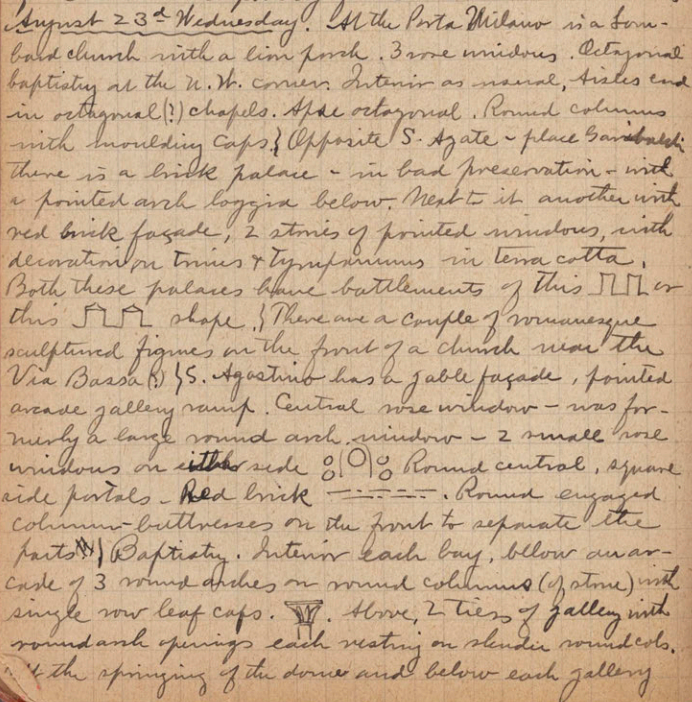 August 23d Wednesday. At the Porta Milano is a Lom-
bard church with a lion porch. 3 rose windows. Octagonal
baptistry at the N.W. corner. Interior as usual, Aisles end
in octagonal (?) chapels. Apse octagonal. Round columns
with moulding caps.} Opposite S. Agate - place Garibaldi
there is a brick palace - in bad preservation - with
a pointed arch loggia below. Next to it another with
red brick façade, 2 stories of pointed windows, with
decoration on trims & tympanums in terra cotta.
Both these palaces have battlements of this or
this shape.} There are a couple of romanesque
sculptured figures on the front of a church near the
Via Bassa (?) } S. Agostino has a gable façade, pointed
arcade gallery ramp. Central rose window - was for-
merly a large round arch window - 2 small rose
windows on either side Round central, square
side portals - Red brick. Round engaged
column-buttresses on the front to separate the
parts } Baptistry. Interior each bay, below an ar-
cade of 3 round arches on round columns (of stone) with
single row leaf caps. Above, 2 tiers of gallery with
round arch openings each resting on slender round cols.
At the springing of the dome and below each gallery